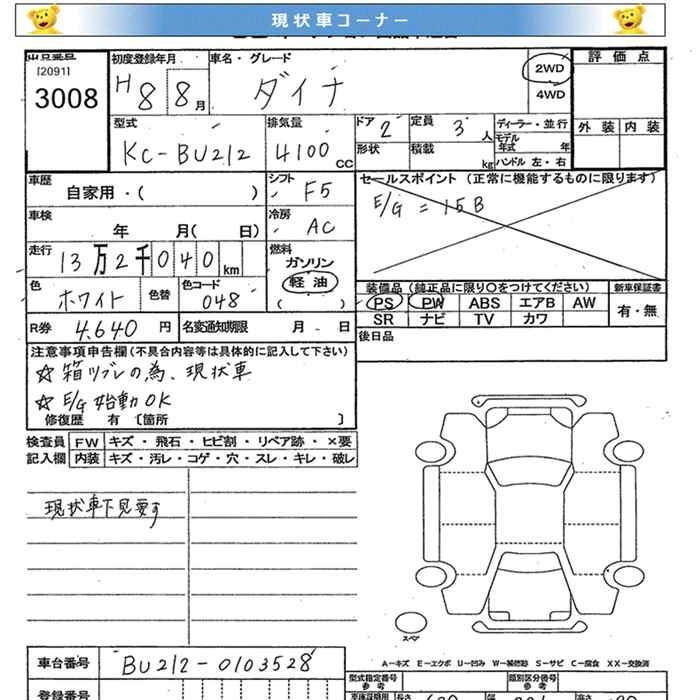 現状車コーナー
出品番号 初度登録年月 車名・グレード 評価点
[2091]
3008
H8 8月 ダイナ 2WD
4WD
外装 内装
型式 排気量 ドア 2 定員 3人 ディーラー・並行
KC-BU212 4100CC 形状 積載 kg モデル年式 年
ハンドル 左・右
車歴 自家用・( ) シフト F5 セールスポイント (正常に機能するものに限ります)
E/G = 15B
車検 年 月( 日) 冷房 AC
走行 13万2千040km 燃料 ガソリン
軽油
( )
色 ホワイト 色替 色コード 048
装備品(純正品に限り○をつけてください) 新車保証書
PS PW ABS エアB AW 有・無
SR ナビ TV カワ
R券 4,640円 名変通知期限 月 日
後日品
注意事項申告欄(不具合内容等は具体的に記入して下さい)
☆箱ツブレの為、現状車
☆E/G始動OK
修復歴 有〔箇所 〕
検査員 FW キズ・飛石・ヒビ割・リペア跡・×要
記入欄 内装 キズ・汚レ・コゲ・穴・スレ・キレ・破レ
現状車下見要す
スペア
A-キズ E-エクボ U-凹み W-補修跡 S-サビ C-腐食 XX-交換済
車台番号 BU212-0103528
型式指定番号 参考 類別区分番号 参考
登録番号